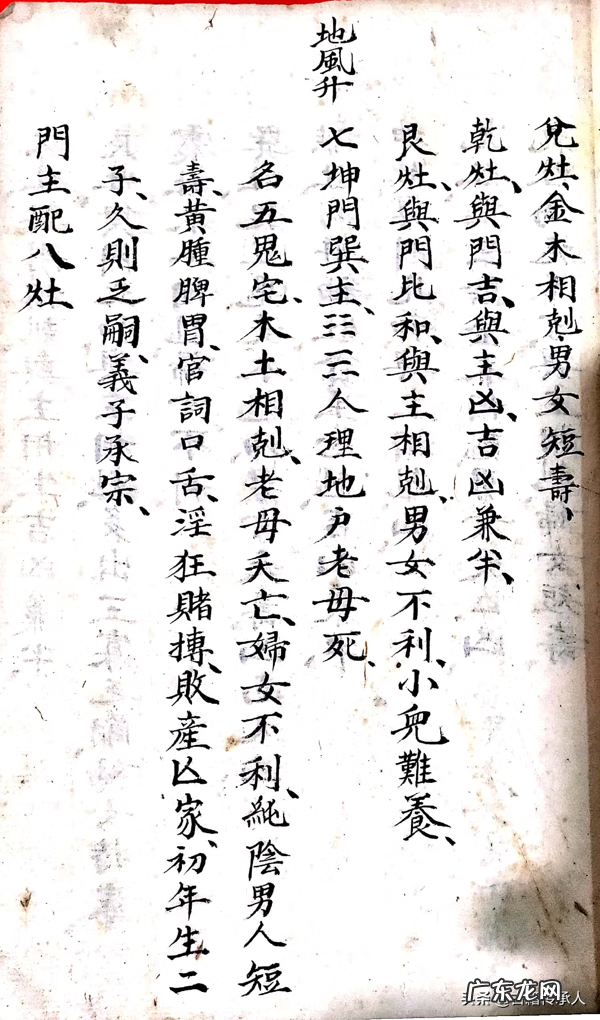 兌灶、金木相剋、男女短壽、
乾灶、與門吉、與主凶、吉凶兼半、
艮灶、與門比和、與主相剋、男女不利、小兒難養、
地風升
七坤門巽主、☷☴人理地户老母死、
名五鬼宅、木土相剋、老母夭亡、婦女不利、純陰男人短
壽、黃腫脾胃、官詞口舌、淫狂賭摶、敗產亾家、初年生二
子、久則乏嗣、義子承宗、
門主配八灶、
头条@古籍传承人
广东龙网